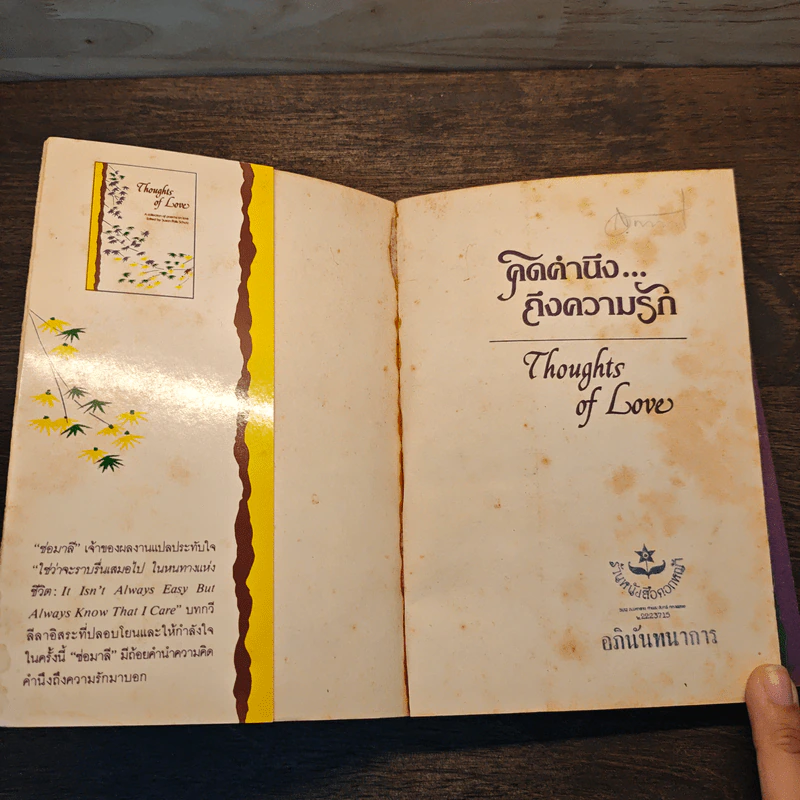 Thoughts
of Love
"ช่อมาลี" เจ้าของผลงานแปลประทับใจ
"ใช่ว่าจะราบรื่นเสมอไป ในหนทางแห่ง
ชีวิต: It Isn't Always Easy But
Always Know That I Care" บทกวี
ลีลาอิสระที่ปลอบโยนและให้กำลังใจ
ในครั้งนี้ "ช่อมาลี" มีถ้อยคำนำความคิด
คำนึงถึงความรักมาบอก
คิดคำนึง...
ถึงความรัก
Thoughts
of Love
ร้านหนังสือดอกหญ้า
2223715
อภินันทนาการ